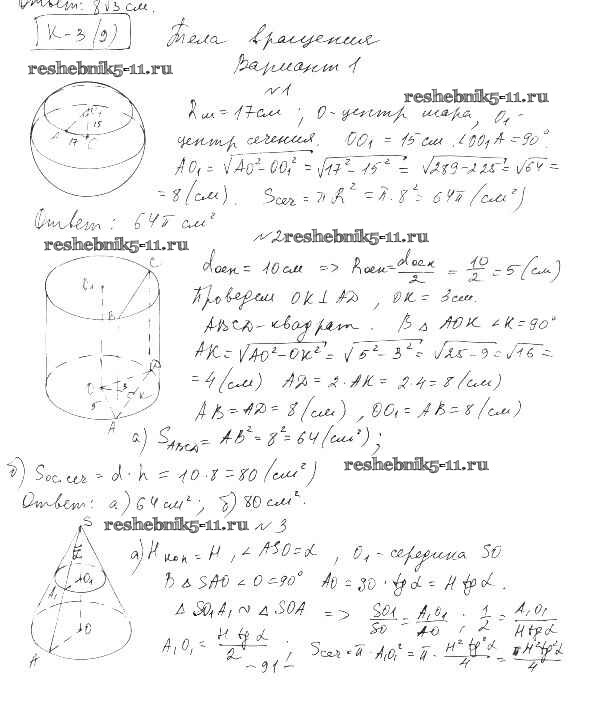 Ответ: 8√3 см.
К-3 (9) Тела вращения
reshebnik5-11.ru Вариант 1
№1 reshebnik5-11.ru
Rш = 17см ; О-центр шара, О₁-
центр сечения. ОО₁ = 15см. ∠ОО₁А = 90°.
АО₁ = √АО²-ОО₁² = √17²-15² = √289-225 = √64 =
= 8 (см). Sсеч = πR² = π·8² = 64π (см²)
Ответ: 64π см²
reshebnik5-11.ru №2 reshebnik5-11.ru
dосн = 10см => Rосн = dосн/2 = 10/2 = 5 (см)
Проведем ОК⊥AD , ОК = 3см.
ABCD-квадрат. В △ АОК ∠К = 90°
АК = √АО²-ОК² = √5²-3² = √25-9 = √16 =
= 4 (см) AD = 2·АК = 2·4 = 8 (см)
АВ = AD = 8 (см) , ОО₁ = АВ = 8 (см)
а) SABCD = АВ² = 8² = 64 (см²) ;
б) Sос.сеч = d·h = 10·8 = 80 (см²) reshebnik5-11.ru
Ответ: а) 64 см² ; б) 80 см².
reshebnik5-11.ru №3
а) Нкон = Н , ∠ASO = α , О₁-середина SO
В △ SAO ∠О = 90° АО = SO·tgα = H tgα.
△ SO₁A₁ ∾ △ SOA => SO₁/SO = A₁O₁/AO ; 1/2 = A₁O₁/H tgα
A₁O₁ = H tgα/2 ; Sсеч = π·A₁O₁² = π·H² tg²α/4 = πH² tg²α/4
-91-